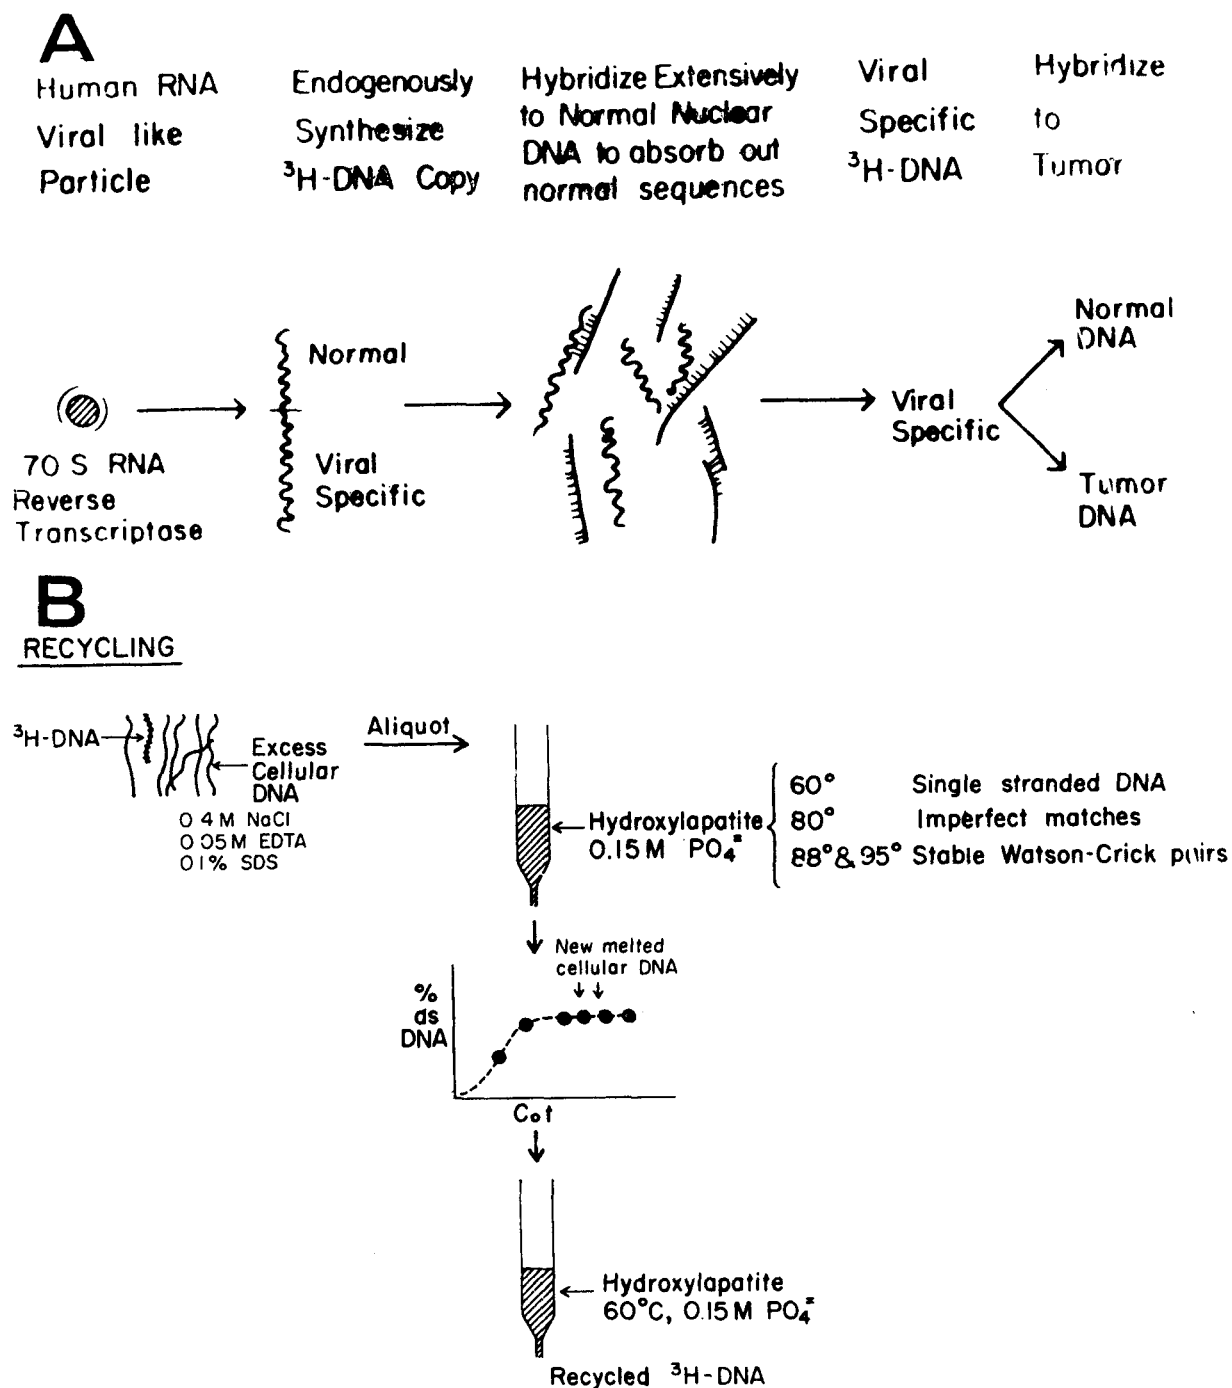 A
Human RNA
Viral like
Particle
Endogenously
Synthesize
³H-DNA Copy
Hybridize Extensively
to Normal Nuclear
DNA to absorb out
normal sequences
Viral
Specific
³H-DNA
Hybridize
to
Tumor
70 S RNA
Reverse
Transcriptase
Normal
Viral
Specific
Viral
Specific
Normal
DNA
Tumor
DNA
B
RECYCLING
³H-DNA
Excess
Cellular
DNA
0.4 M NaCl
0.05 M EDTA
0.1% SDS
Aliquot
Hydroxylapatite
0.15 M PO₄⁼
60° Single stranded DNA
80° Imperfect matches
88° & 95° Stable Watson-Crick pairs
New melted
cellular DNA
%
ds
DNA
Cot
Hydroxylapatite
60°C, 0.15 M PO₄⁼
Recycled ³H-DNA